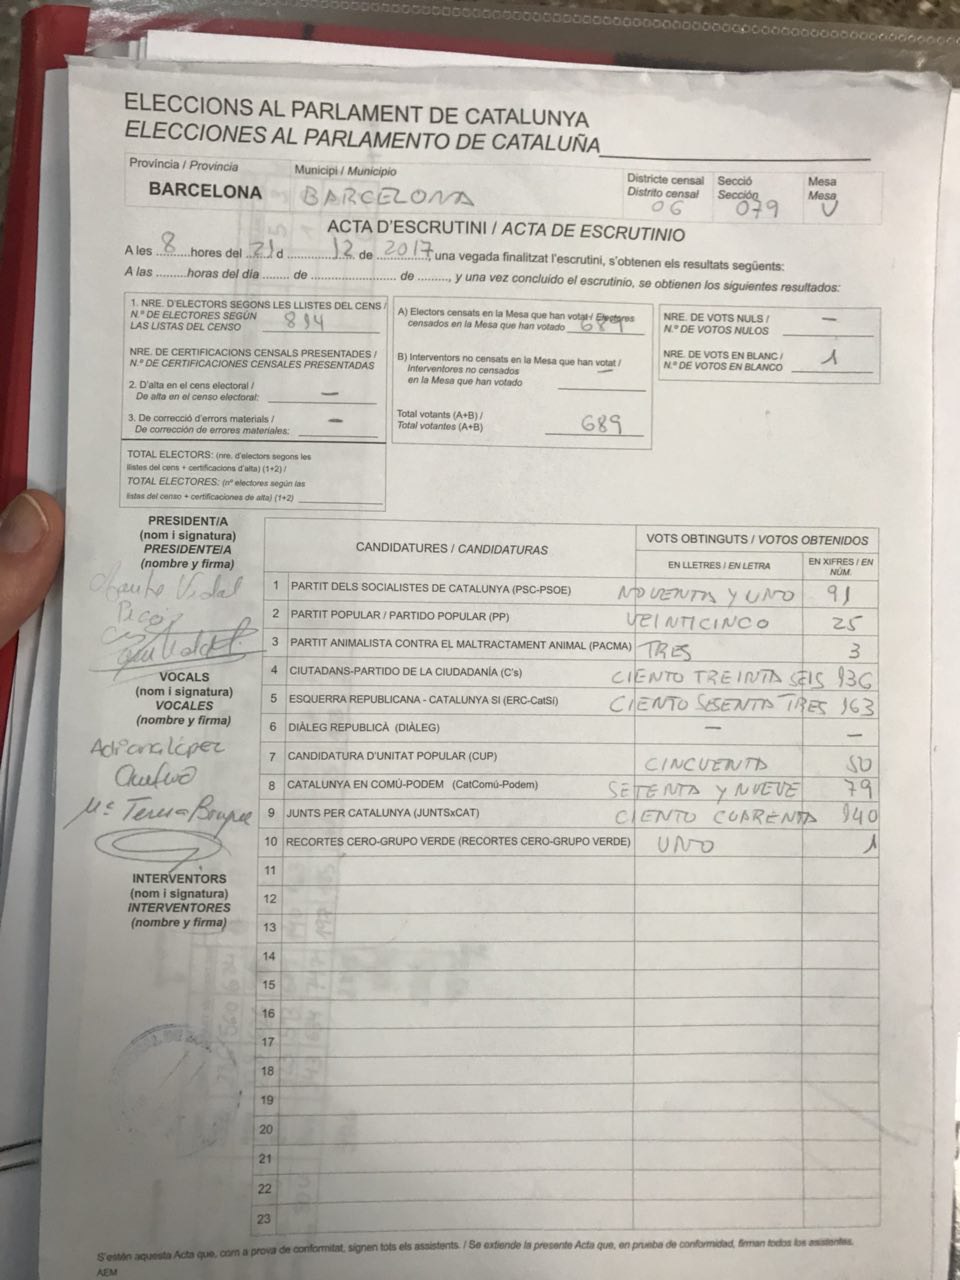 ELECCIONS AL PARLAMENT DE CATALUNYA
ELECCIONES AL PARLAMENTO DE CATALUÑA
Província / Provincia
BARCELONA
Municipi / Municipio
BARCELONA
Districte censal
Distrito censal
06
Secció
Sección
079
Mesa
Mesa
U
ACTA D'ESCRUTINI / ACTA DE ESCRUTINIO
A les 8 hores del 21 d 12 de 2017, una vegada finalitzat l'escrutini, s'obtenen els resultats següents:
A las ......... horas del día ........ de ...................... de ........, y una vez concluido el escrutinio, se obtienen los siguientes resultados:
1. NRE. D'ELECTORS SEGONS LES LLISTES DEL CENS /
N.º DE ELECTORES SEGÚN
LAS LISTAS DEL CENSO 894
NRE. DE CERTIFICACIONS CENSALS PRESENTADES /
N.º DE CERTIFICACIONES CENSALES PRESENTADAS
2. D'alta en el cens electoral /
De alta en el censo electoral: —
3. De correcció d'errors materials /
De corrección de errores materiales: —
TOTAL ELECTORS: (nre. d'electors segons les
llistes del cens + certificacions d'alta) (1+2) /
TOTAL ELECTORES: (nº electores según las
listas del censo + certificaciones de alta) (1+2)
A) Electors censats en la Mesa que han votat / Electores
censados en la Mesa que han votado 689
B) Interventors no censats en la Mesa que han votat /
Interventores no censados —
en la Mesa que han votado
Total votants (A+B) /
Total votantes (A+B) 689
NRE. DE VOTS NULS /
N.º DE VOTOS NULOS —
NRE. DE VOTS EN BLANC /
N.º DE VOTOS EN BLANCO 1
PRESIDENT/A
(nom i signatura)
PRESIDENTE/A
(nombre y firma)
Vidal
VOCALS
(nom i signatura)
VOCALES
(nombre y firma)
Adriana López
Mª Teresa
INTERVENTORS
(nom i signatura)
INTERVENTORES
(nombre y firma)
CANDIDATURES / CANDIDATURAS
VOTS OBTINGUTS / VOTOS OBTENIDOS
EN LLETRES / EN LETRA
EN XIFRES / EN NÚM.
1 PARTIT DELS SOCIALISTES DE CATALUNYA (PSC-PSOE) NOVENTA Y UNO 91
2 PARTIT POPULAR / PARTIDO POPULAR (PP) VEINTICINCO 25
3 PARTIT ANIMALISTA CONTRA EL MALTRACTAMENT ANIMAL (PACMA) TRES 3
4 CIUTADANS-PARTIDO DE LA CIUDADANÍA (C's) CIENTO TREINTA SEIS 136
5 ESQUERRA REPUBLICANA - CATALUNYA SI (ERC-CatSí) CIENTO SESENTA TRES 163
6 DIÀLEG REPUBLICÀ (DIÀLEG) — —
7 CANDIDATURA D'UNITAT POPULAR (CUP) CINCUENTA 50
8 CATALUNYA EN COMÚ-PODEM (CatComú-Podem) SETENTA Y NUEVE 79
9 JUNTS PER CATALUNYA (JUNTSxCAT) CIENTO CUARENTA 140
10 RECORTES CERO-GRUPO VERDE (RECORTES CERO-GRUPO VERDE) UNO 1
11
12
13
14
15
16
17
18
19
20
21
22
23
S'estén aquesta Acta que, com a prova de conformitat, signen tots els assistents. / Se extiende la presente Acta que, en prueba de conformidad, firman todos los asistentes.
AEM